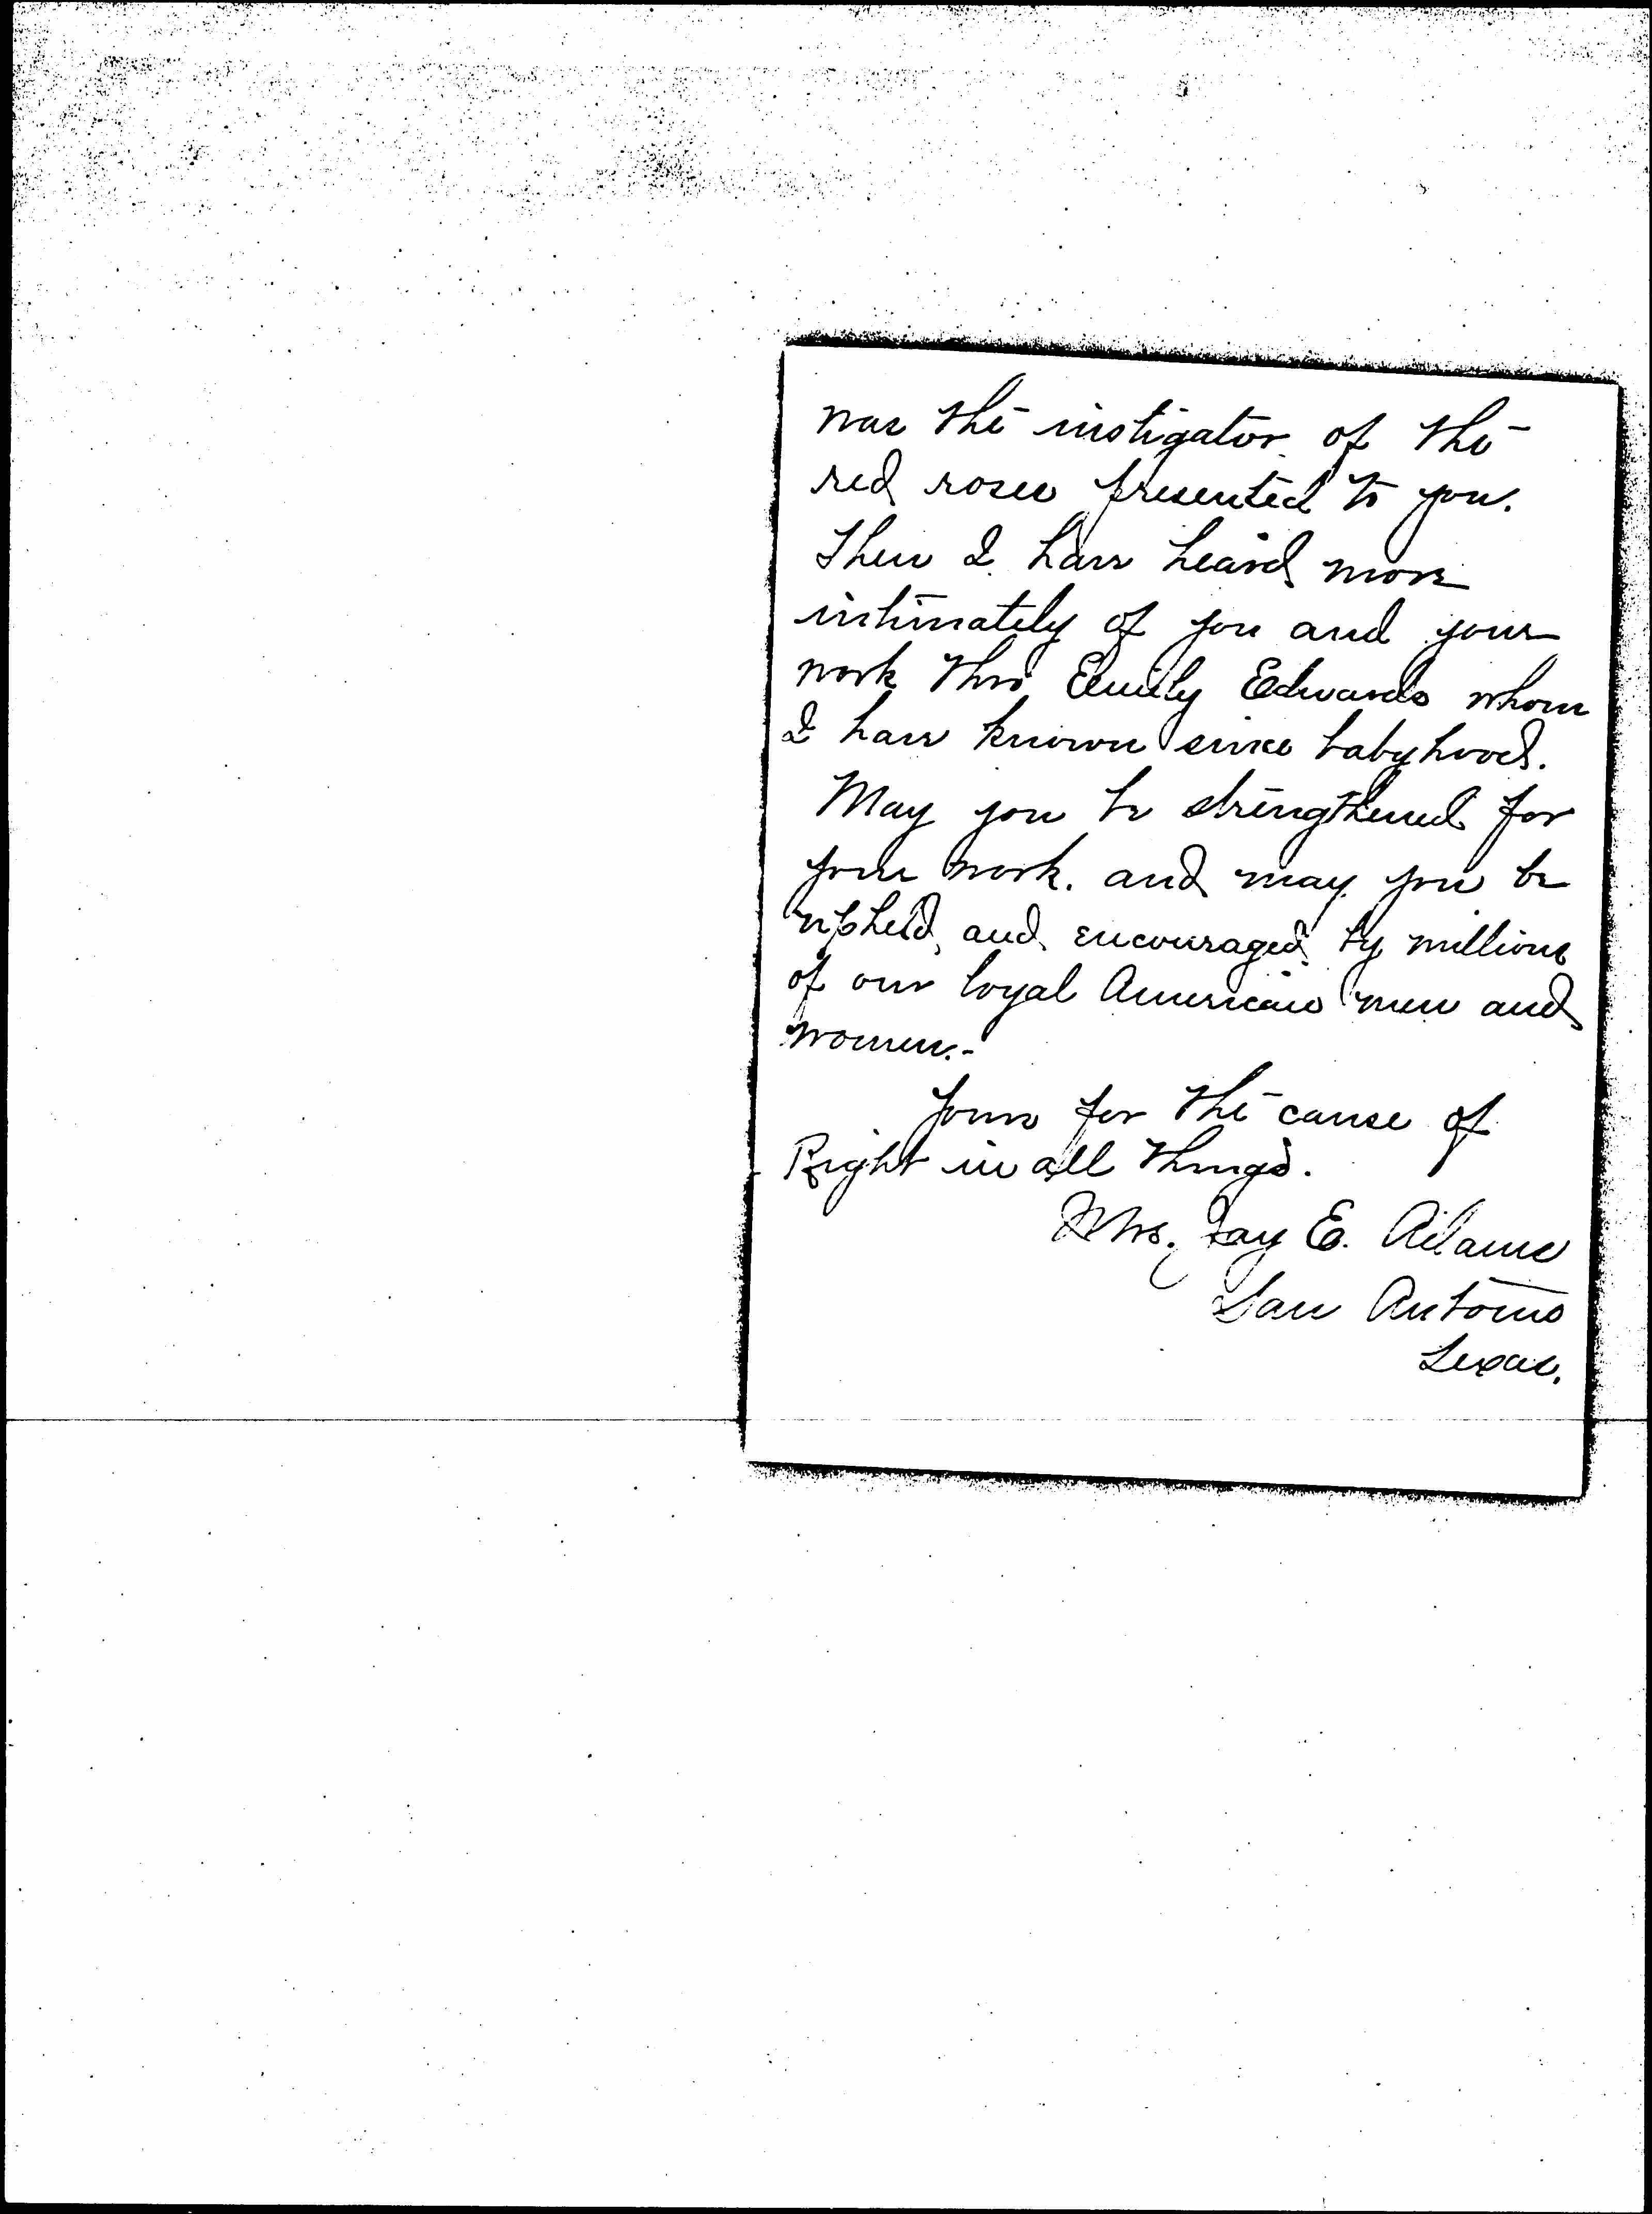 was the instigator of the
red roses presented to you.
Then I have heard more
intimately of you and your
work thro Emily Edwards whom
I have known since babyhood.
May you be strengthened for
your work. and may you be
upheld, and encouraged by millions
of our loyal American men and
women.-
Yours for the cause of
Right in all things.
Mrs. Jay E. Adams
San Antonio
Texas.